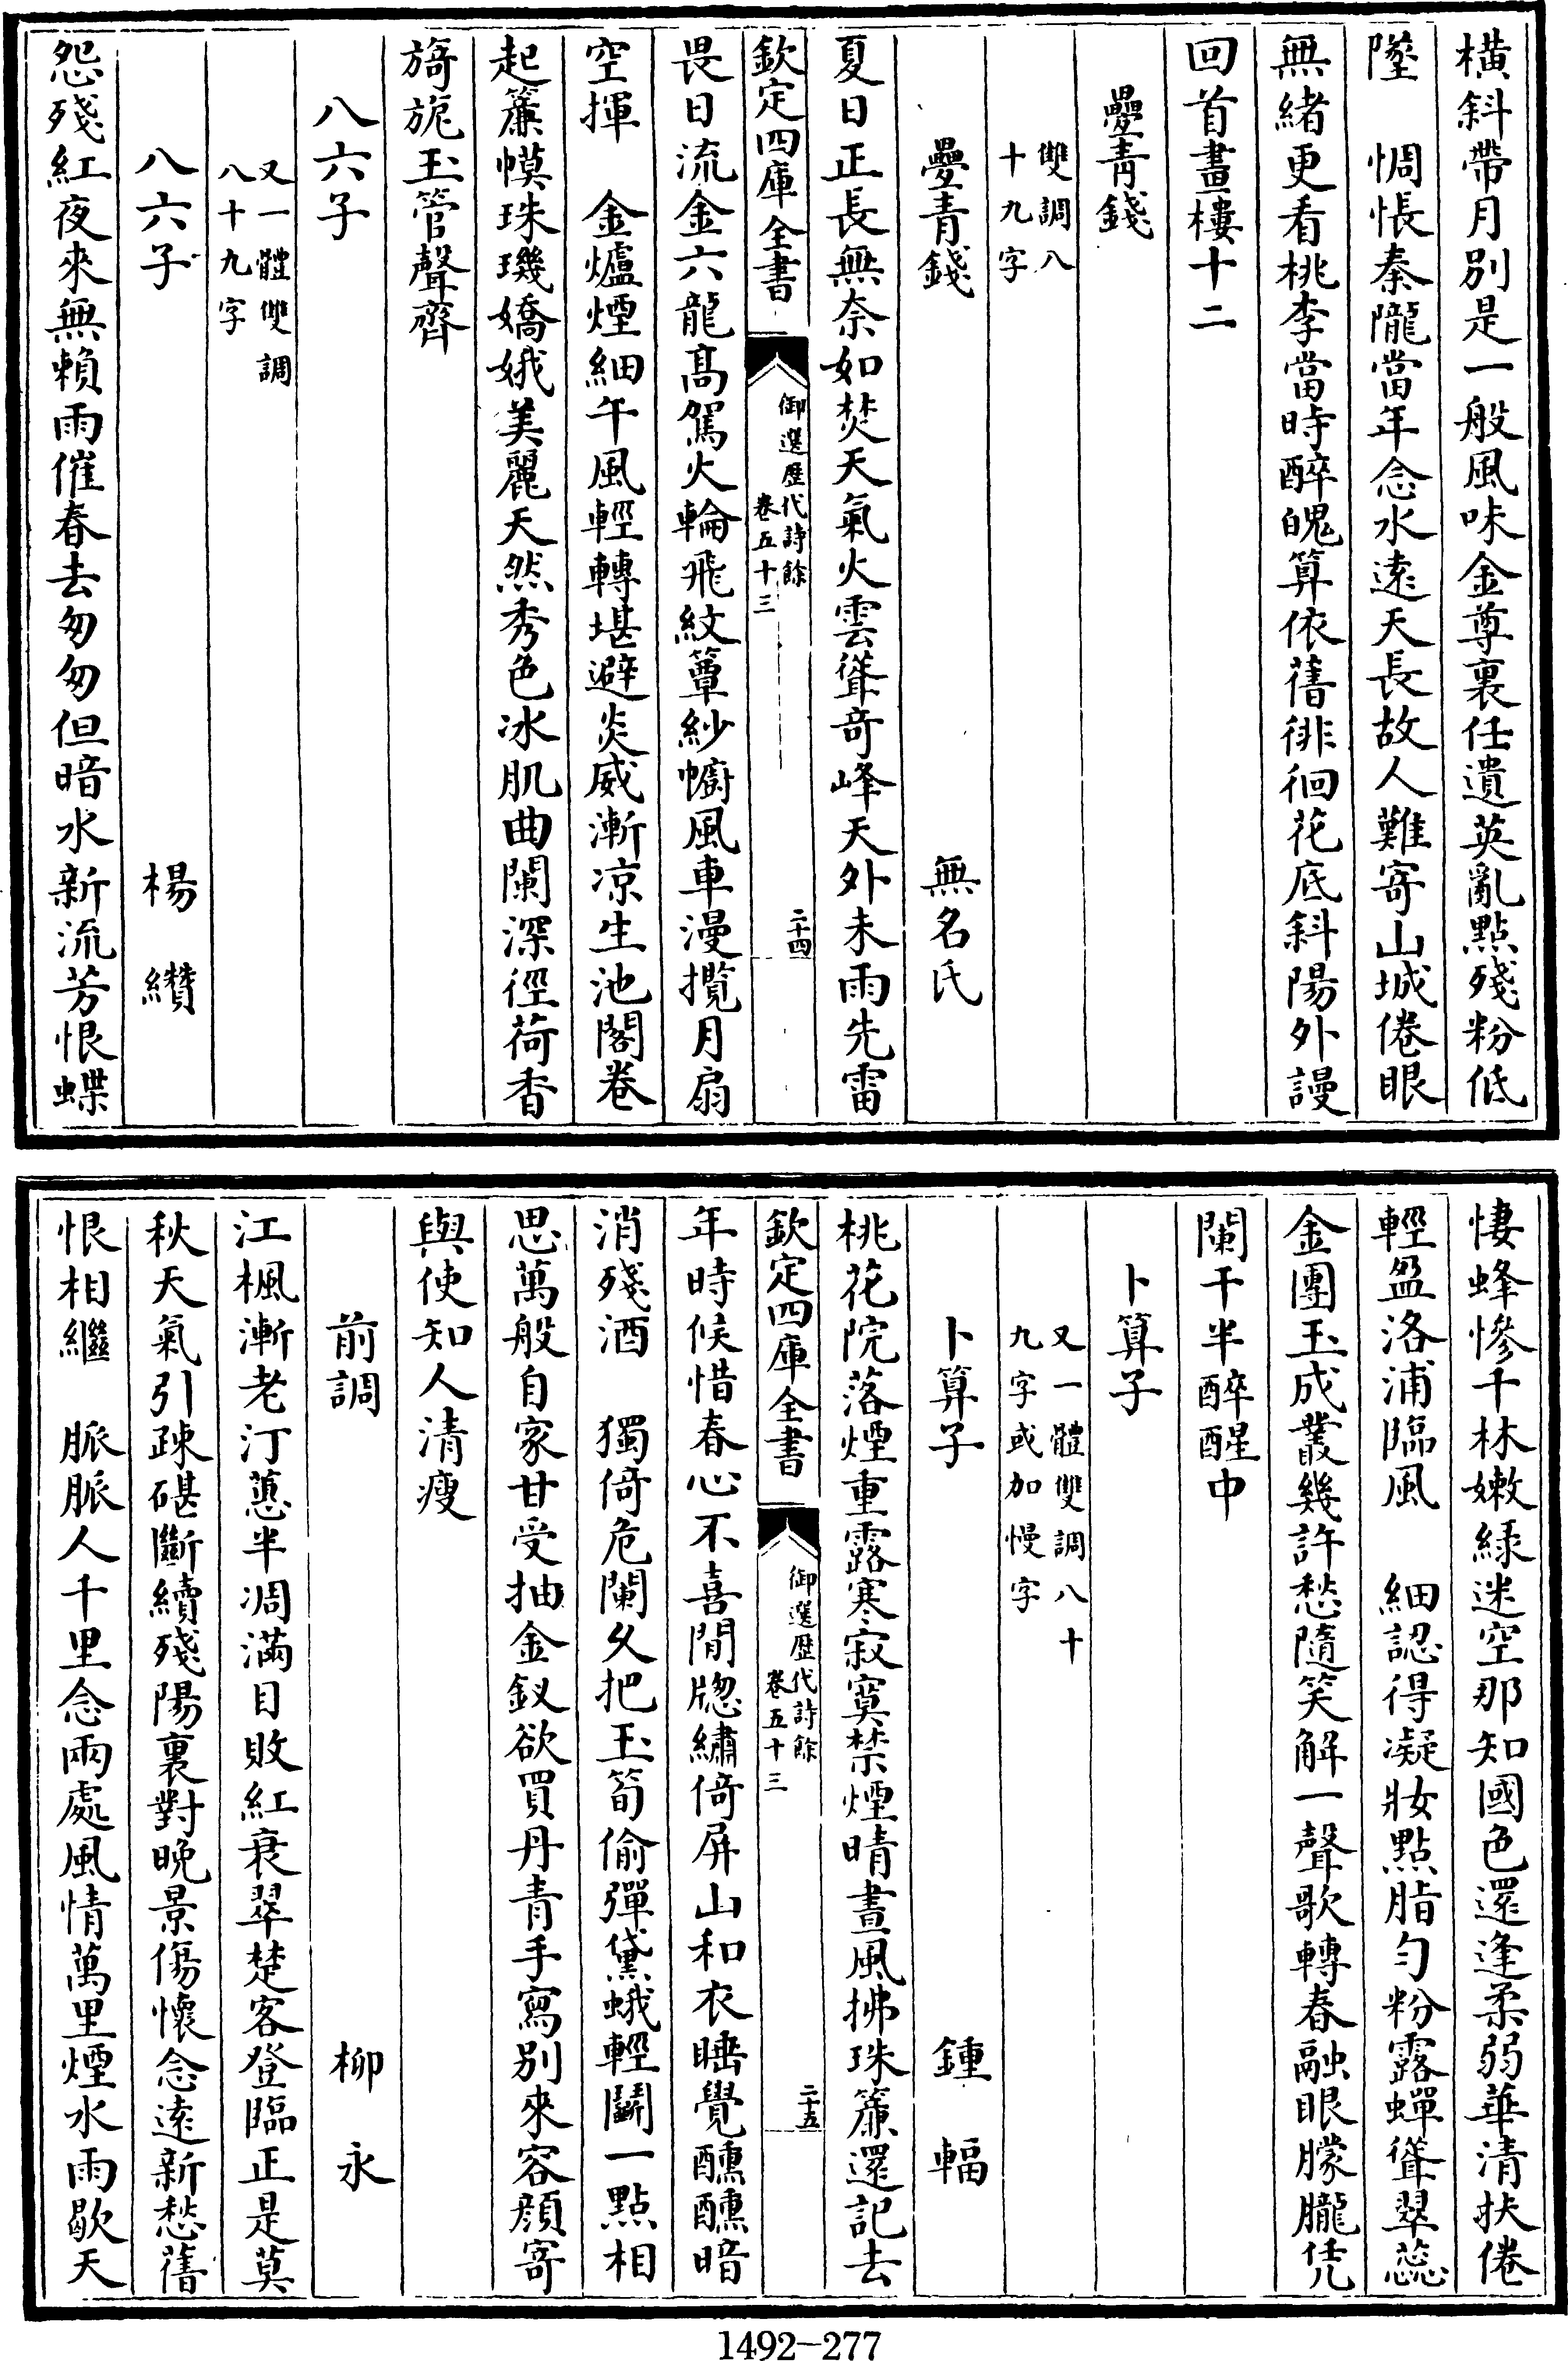 橫斜帶月別是一般風味金尊裏任遺英亂點殘粉低
墜　惆悵秦隴當年念水遠天長故人難寄山城倦眼
無緒更看桃李當時醉魄算依舊徘徊花底斜陽外謾
回首畫樓十二
疊青錢
雙調八
十九字
疊青錢　無名氏
夏日正長無奈如焚天氣火雲聳奇峰天外未雨先雷
欽定四庫全書
御選歷代詩餘
卷五十三
二十四
畏日流金六龍高駕火輪飛紋簟紗幮風車漫攪月扇
空揮　金爐煙細午風輕轉堪避炎威漸凉生池閣卷
起簾幙珠璣嬌娥美麗天然秀色冰肌曲闌深徑荷香
旖旎玉管聲齊
八六子
又一體雙調
八十九字
八六子　楊纘
怨殘紅夜來無賴雨催春去匆匆但暗水新流芳恨蝶
悽蜂慘千林嫩緑迷空那知國色還逢柔弱華清扶倦
輕盈洛浦臨風　細認得凝妝點脂勻粉露蟬聳翠蕊
金團玉成叢幾許愁隨笑解一聲歌轉春融眼朦朧凭
闌干半醉醒中
卜算子
又一體雙調八十
九字或加慢字
卜算子　鍾輻
桃花院落煙重露寒寂寞禁煙晴晝風拂珠簾還記去
欽定四庫全書
御選歷代詩餘
卷五十三
二十五
年時候惜春心不喜閒牎繡倚屏山和衣睡覺醺醺暗
消殘酒　獨倚危闌久把玉筍偷彈黛蛾輕鬬一點相
思萬般自家甘受抽金釵欲買丹青手寫別來容顔寄
與使知人清瘦
前調　柳永
江楓漸老汀蕙半凋滿目敗紅衰翠楚客登臨正是莫
秋天氣引疎碪斷續殘陽裏對晚景傷懷念遠新愁舊
恨相繼　脈脈人千里念兩處風情萬里煙水雨歇天
1492-277